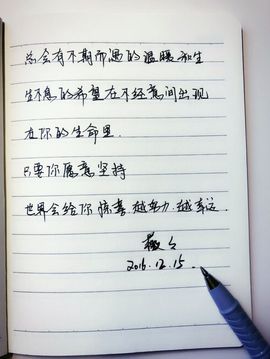 总会有不期而遇的温暖和生
生不息的希望在不经意间出现
在你的生命里.
只要你愿意坚持
世界会给你惊喜.越努力.越幸运.
薇之
2016.12.15.